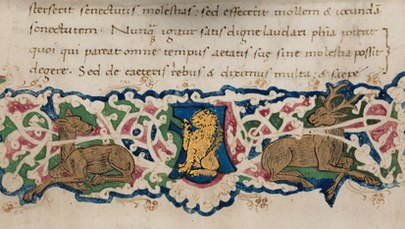 sterserit senectutis molestias: sed effecerit mollem & iocundã
senectutem. Nunq̃ igitur satis digne laudari phĩa poterit
quoi qui pareat omne tempus aetatis sue sine molestia possit
degere. Sed de caeteris rebus & diximus multa: & saepe